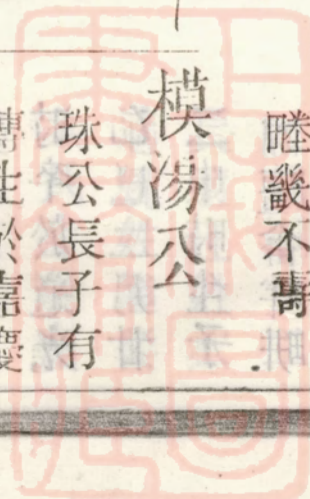 畻畿不壽
模湯公
珠公長子有
傳生於嘉慶